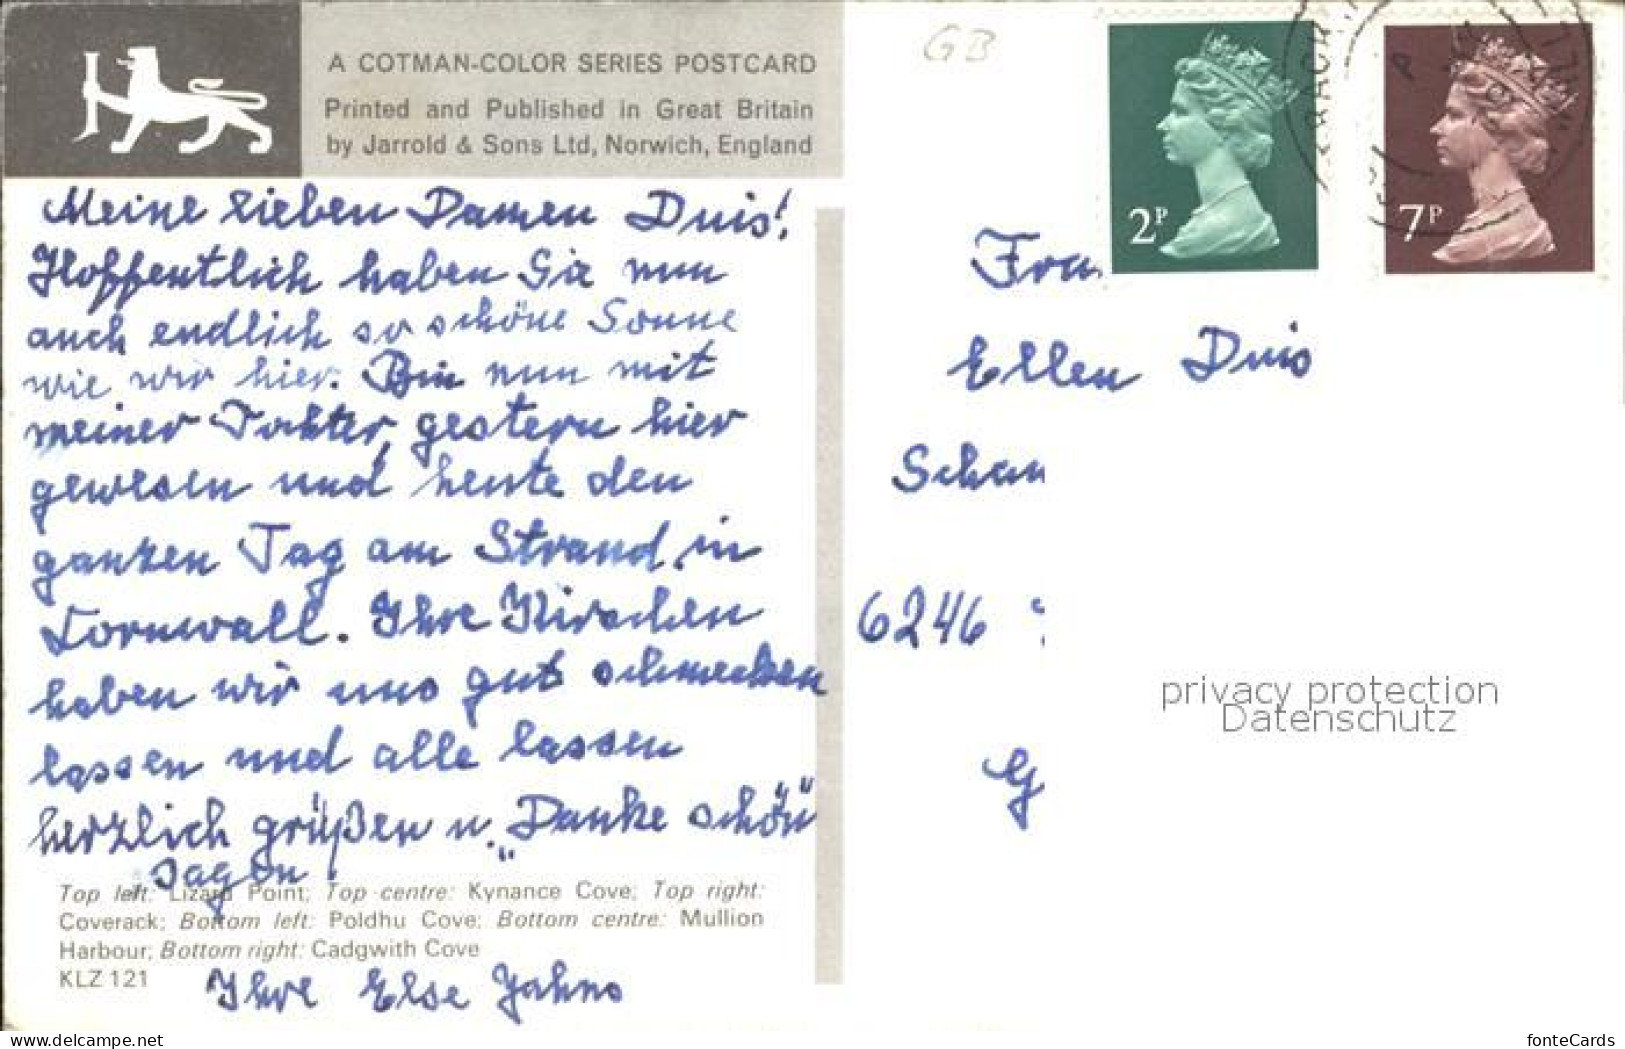 A COTMAN-COLOR SERIES POSTCARD
Printed and Published in Great Britain
by Jarrold & Sons Ltd, Norwich, England
GB
2P
7P
Meine lieben Damen Duis!
Hoffentlich haben Sie nun
auch endlich so schöne Sonne
wie wir hier. Bin nun mit
meiner Tochter, gestern hier
gewesen und heute den
ganzen Tag am Strand in
Cornwall. Ihre Kirschen
haben wir uns gut schmecken
lassen und alle lassen
herzlich grüßen u. „Danke schön"
sagen!
Ihre Else Jahns
Top left: Lizard Point; Top centre: Kynance Cove; Top right:
Coverack; Bottom left: Poldhu Cove; Bottom centre: Mullion
Harbour; Bottom right: Cadgwith Cove
KLZ 121
Frau
Ellen Duis
Schau
6246
G
privacy protection
Datenschutz
www.delcampe.net
fonteCards